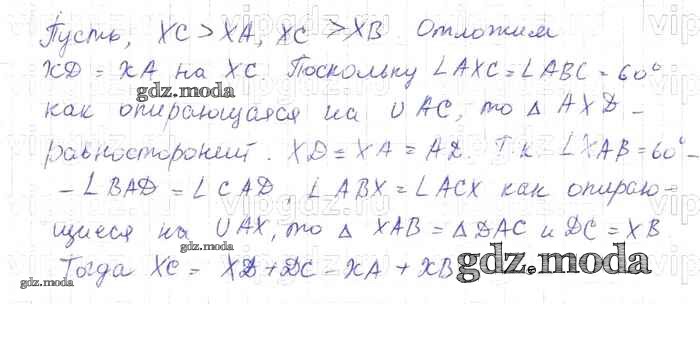 Пусть, XC > XA, XC > XB. Отложим
XD = XA на XC. Поскольку ∠AXC = ∠ABC = 60°
как опирающаяся на ∪AC, то △AXD -
равносторонний. XD = XA = AD. Т.к. ∠XAB = 60° -
- ∠BAD = ∠CAD, ∠ABX = ∠ACX как опираю-
щиеся на ∪AX, то △XAB = △DAC и DC = XB
Тогда XC = XD + DC = XA + XB
gdz.moda
gdz.moda
gdz.moda
gdz.moda
gdz.moda